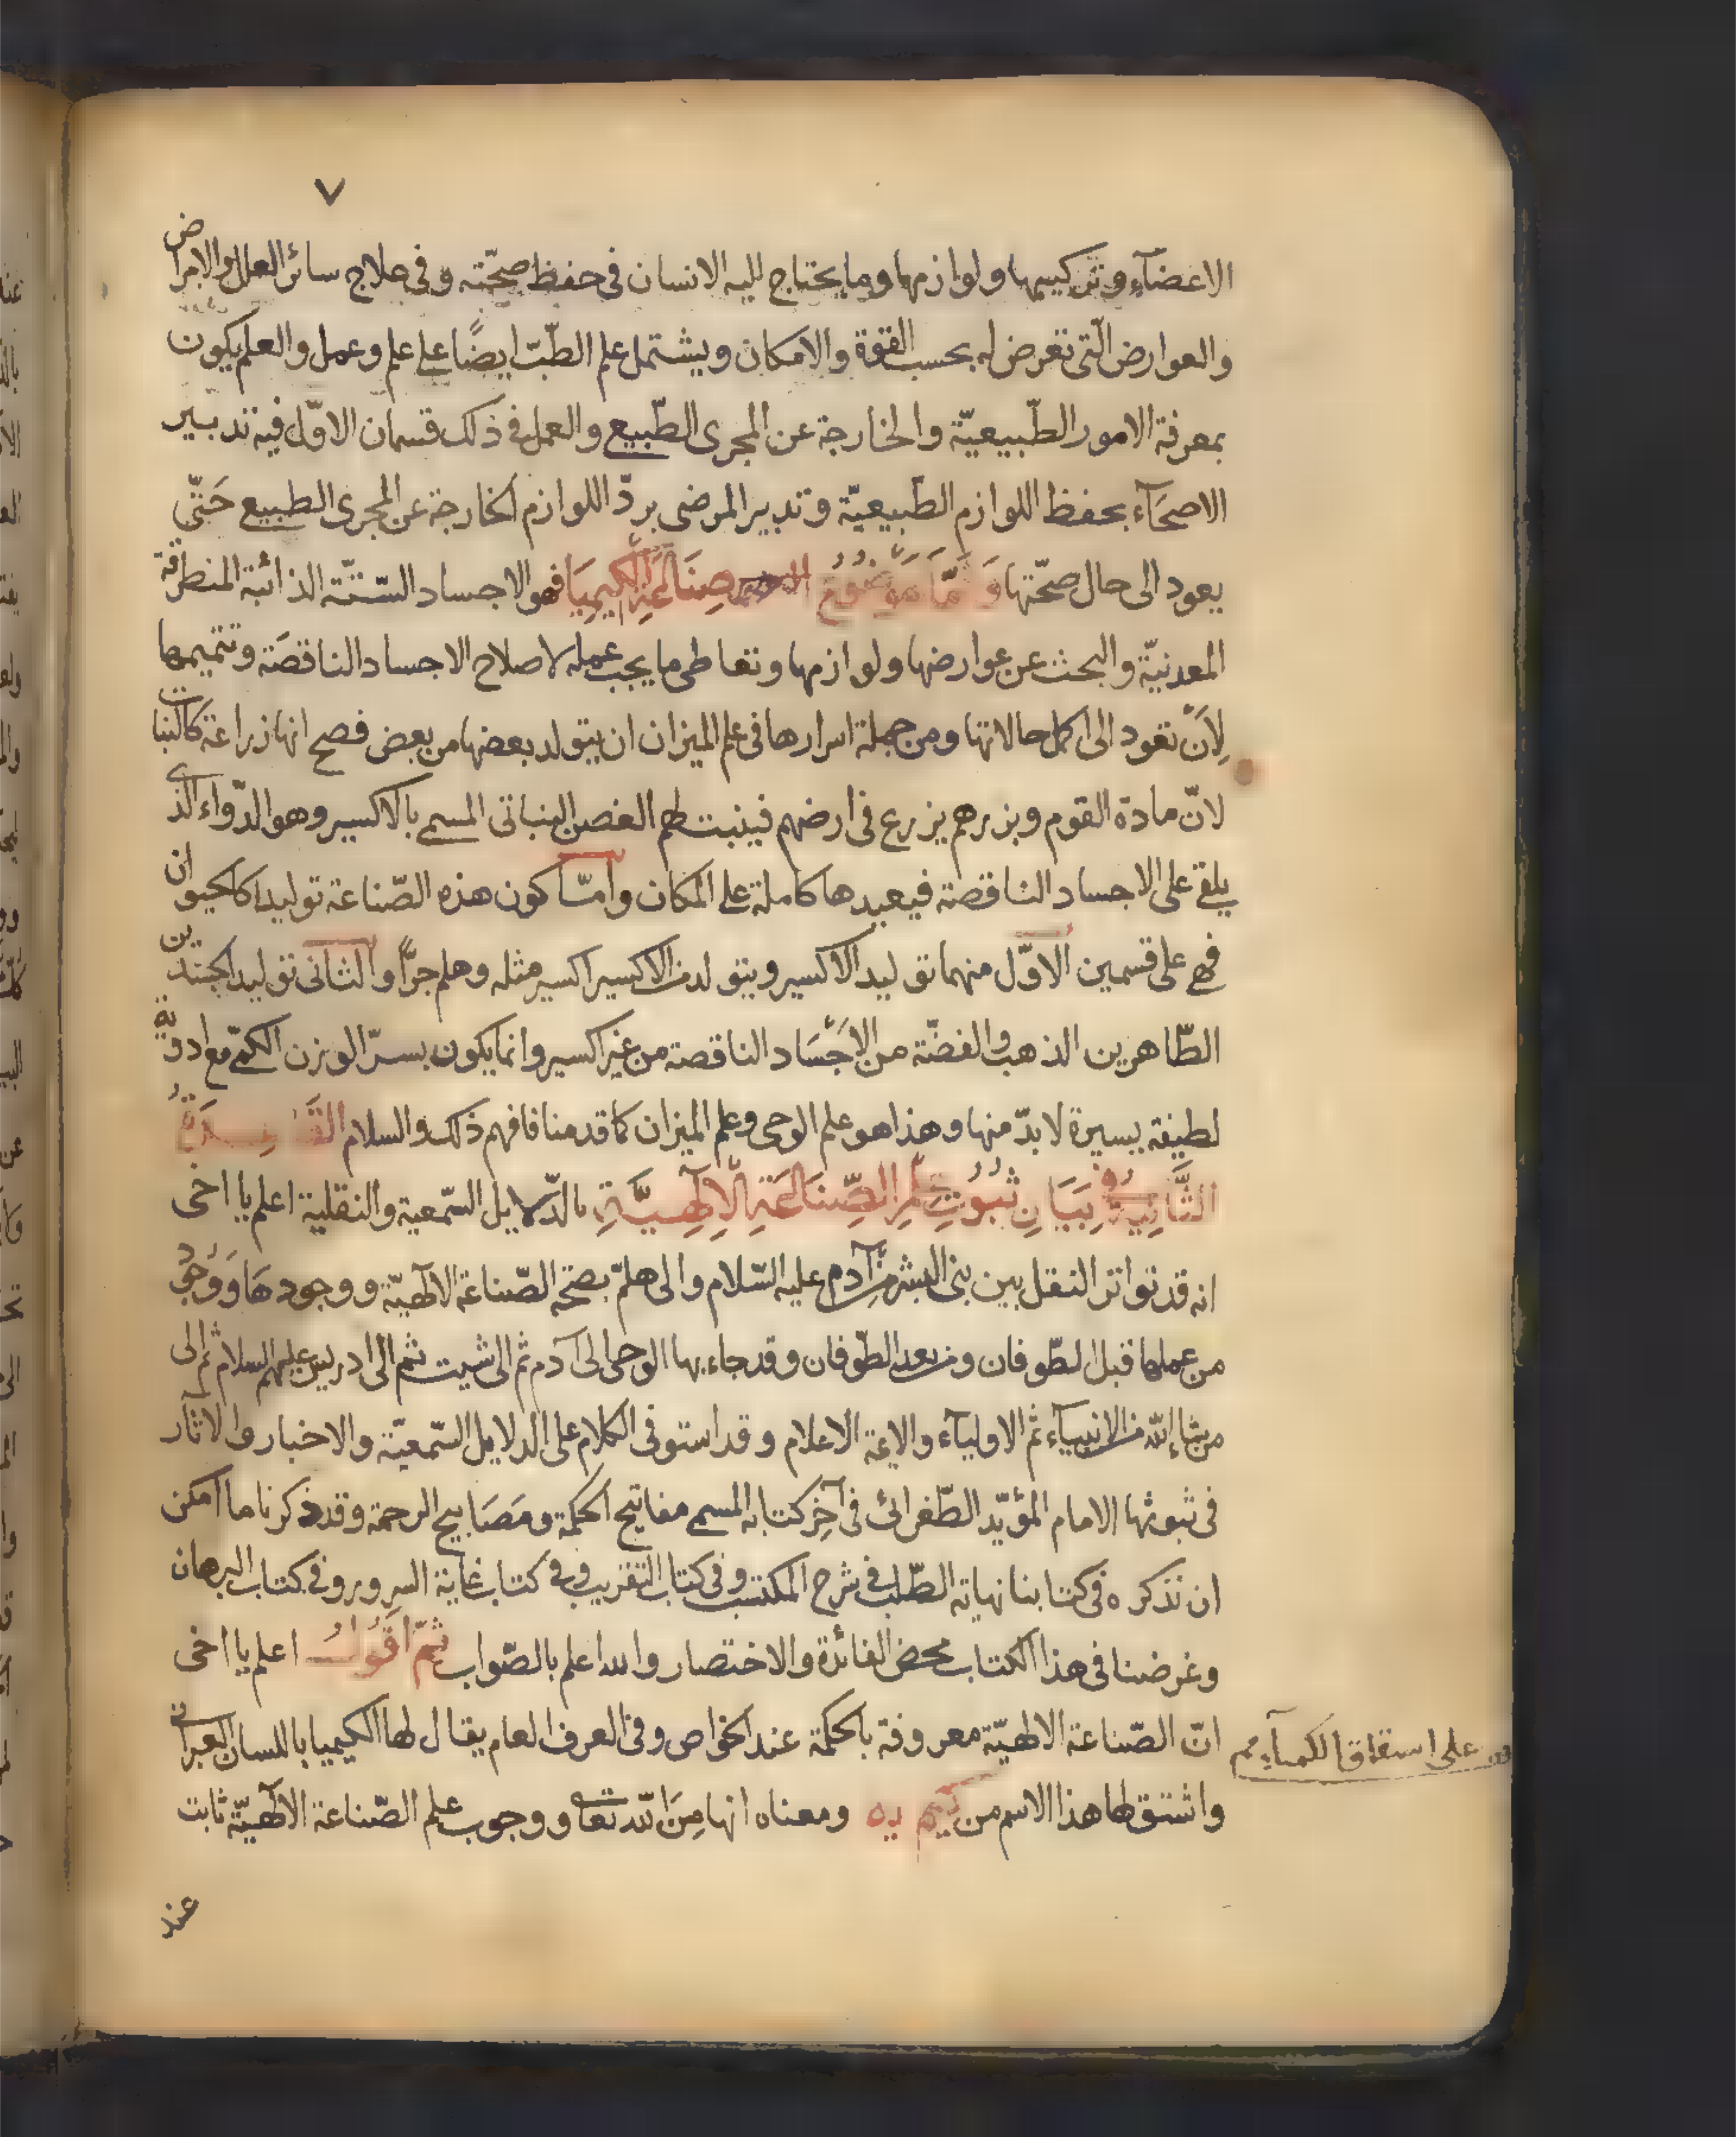 ٧
الاعضآء وتركيبها ولوازمها وما يحتاج اليه الانسان فى حفظ صحّته وفى علاج سائر العلل والامراض
والعوارض الّتى تعرض له بحسب القوة والامكان ويشتمل علم الطّبّ ايضًا على علم وعمل والعلم يكون
بمعرفة الامور الطّبيعيّة والخارجة عن المجرى الطّبيع والعمل فى ذلك قسمان الاوّل فيه تدبير
الاصحآء بحفظ اللوازم الطّبيعيّة وتدبير المرضى بردّ اللوازم الخارجة عن المجرى الطبيع حَتّى
يعود الى حال صحّتها وَامَّا مَوْضُوْعُ صِنَاعَةِ الْكِيمِيَا فهو الاجساد السّتّة الذائبة المنطرقة
المعدنيّة والبحث عن عوارضها ولوازمها وتعاطى ما يجب عمله لاصلاح الاجساد الناقصَة وتتميمها
لِاَنْ تعود الى اكمل حالاتها ومن جملة اسرارها فى علم الميزان ان يتولد بعضها من بعض فصح انها زراعة كالنبات
لانّ مادة القوم وبزرهم يزرع فى ارضهم فينبت لهم الغصن النباتى المسمى بالاكسير وهو الدّواء الّذى
يلقى على الاجساد الناقصة فيعيدها كاملة على المكان وامّا كون هذه الصّناعة توليدا كالحيوان
فهى على قسمين الاوّل منهما توليد الاكسير ويتولد من الاكسير اكسير مثله وهلم جرًّا والثانى توليد الجسدين
الطّاهرين الذهب والفضّة من الاَجْسَاد الناقصة من غير اكسير وانما يكون بسرّ الوزن الكمّى مع ادوية
لطيفة يسيرة لا بدّ منها وهذا هو علم الوحى وعلم الميزان كما قدمنا فافهم ذلك والسلام
الثَّانِيَةُ فِى بَيَانِ ثُبُوْتِ عِلْمِ الصِّنَاعَةِ الْاِلٰهِيَّةِ بالدّلايل السّمعية والنقلية اعلم يا اخى
انه قد تواتر النقل بين بنى البشر من آدم عليه السّلام والى هلمّ بصحّة الصّناعة الالٰهيّة ووجودهَا وَوُجُوْد
من عملها قبل الطّوفان ومن بعد الطّوفان وقد جاء بها الوحى الى آدم ثم الى شيت ثم الى ادريس عليهم السلام ثم الى
من شاء اللّه من الانبيآء ثم الاوليآء والائمة الاعلام وقد استوفى الكلام على الدلايل السّمعيّة والاخبار والاثار
فى ثبوتها الامام المؤيّد الطّغرائى فى آخِر كتابه المسمى مفاتيح الحكمة ومَصَابيح الرحمة وقد ذكرنا ما امكن
ان نذكره فى كتابنا نهاية الطّلب فى شرح المكتسب وفى كتاب التقريب وفى كتاب غاية السرور وفى كتاب البرهان
وغرضنا فى هذا الكتاب محض الفائدة والاختصار والله اعلم بالصّواب ثُمّ اَقُوْلُ اعلم يا اخى
انّ الصّناعة الالهيّة معروفة بالحكمة عند الخواص وفى العرف العام يقال لها الكيميا باللسان العبرانى
على اشتقاق الكميآء
واشتق لها هذا الاسم من كيم يه ومعناه انها مِنَ اللّه تعالى ووجوب علم الصّناعة الالٰهيّة ثابت
عند